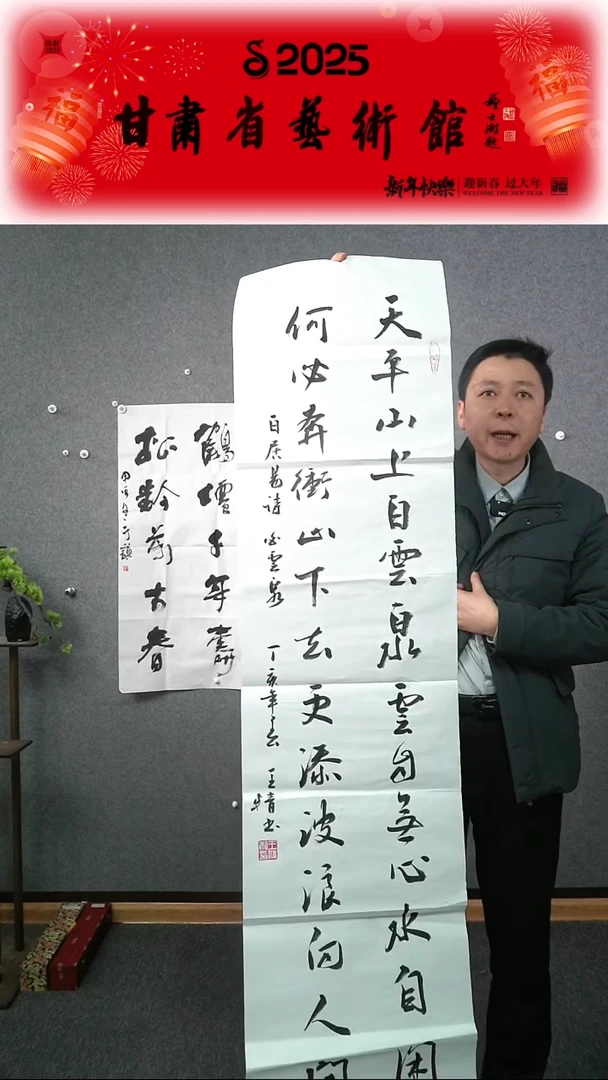 2025
甘肃省藝術館
新年快樂 迎新春 过大年
WELCOME THE NEW YEAR
福
福
天平山上白雲泉雲自無心水自閑
何必奔衝山下去更添波浪向人間
白居易诗 白雲泉 丁亥年 王精书
鶴壇千年壽
松齡萬古春